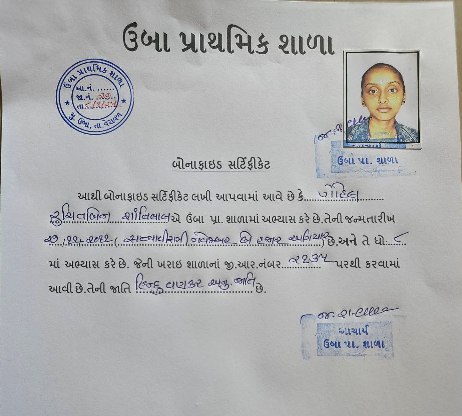 ઉબા પ્રાથમિક શાળા
ઉબા પ્રાથમિક શાળા
આ.નં. ......
જા.નં.
તા.
મું. ઉબા, તા. વેરાવળ
ઉબા પ્રા. શાળા
બોનાફાઇડ સર્ટિફીકેટ
આથી બોનાફાઇડ સર્ટિફીકેટ લખી આપવામાં આવે છે કે.
શાંતિલાલ એ ઉબા પ્રા. શાળામાં અભ્યાસ કરે છે.તેની જન્મતારીખ
છે.અને તે ધો. ૮
માં અભ્યાસ કરે છે. જેની ખરાઇ શાળાનાં જી.આર.નંબર ૨૨૩૫ પરથી કરવામાં
આવી છે.તેની જાતિ હિન્દુ વણકર અનુ. જાતિ છે.
આચાર્ય
ઉબા પ્રા. શાળા